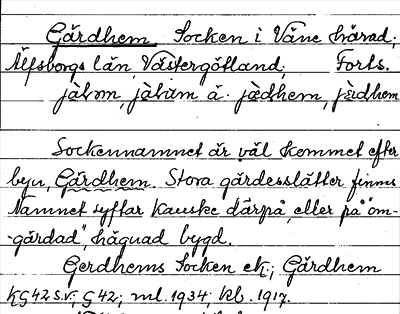 Gärdhem Socken i Väne härad,
Älfsborgs län, Västergötland. Forts.
jàlʋm, jàlʋm å. jædhem, jædhem
Sockennamnet är väl kommet efter
byn, Gärdhem. Stora gärdesslätter finns
Namnet syftar kanske därpå, eller på "om-
-gärdad", hägnad bygd.
Gerdhems Socken ek.; Gärdhem
KG42 s.v.; G42; ml. 1934; kb. 1917.